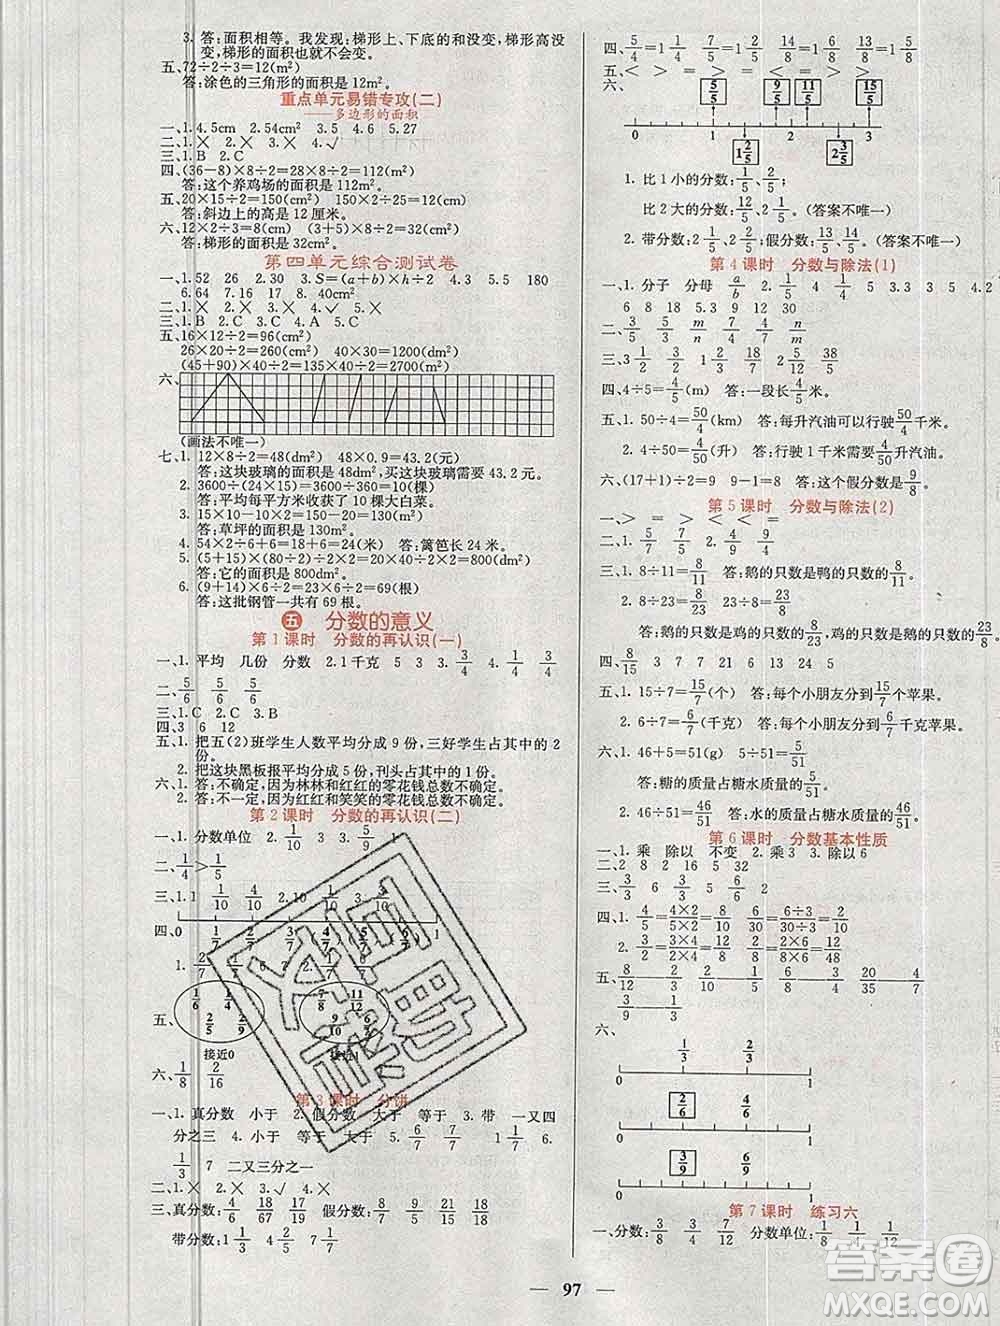 3. 答:面积相等。我发现:梯形上、下底的和没变,梯形高没
变,梯形的面积也就不会变。
五、72÷2÷3=12(m²)
答:涂色的三角形的面积是12m²。
重点单元易错专攻(二)
——多边形的面积
一、1.4.5cm 2.54cm² 3.5 4.6 5.27
二、1.× 2.× 3.× 4.✓
三、1.B 2.C
四、(36-8)×8÷2=28×8÷2=112(m²)
答:这个养鸡场的面积是112m²。
五、20×15÷2=150(cm²) 150×2÷25=12(cm)
答:斜边上的高是12厘米。
六、12×2÷3=8(cm) (3+5)×8÷2=32(cm²)
答:梯形的面积是32cm²。
第四单元综合测试卷
一、1.52 26 2.30 3.S=(a+b)×h÷2 4.3 5.5 180
6.64 7.16 17 8.40cm²
二、1.× 2.× 3.× 4.✓ 5.×
三、1.B 2.C 3.C 4.A 5.C
五、16×12÷2=96(cm²)
26×20÷2=260(cm²) 40×30=1200(dm²)
(45+90)×40÷2=135×40÷2=2700(m²)
六、
(画法不唯一)
七、1.12×8÷2=48(dm²) 48×0.9=43.2(元)
答:这块玻璃的面积是48dm²,买这块玻璃需要43.2元。
2. 3600÷(24×15)=3600÷360=10(棵)
答:平均每平方米收获了10棵大白菜。
3. 15×10-10×2=150-20=130(m²)
答:草坪的面积是130m²。
4. 54×2÷6+6=18+6=24(米) 答:篱笆长24米。
5. (5+15)×(80÷2)÷2×2=20×40÷2×2=800(dm²)
答:它的面积是800dm²。
6. (9+14)×6÷2=23×6÷2=69(根)
答:这批钢管一共有69根。
五 分数的意义
第1课时 分数的再认识(一)
一、1. 平均 几份 分数 2.1千克 5 3 3.3/4 1/4 3/4
二、5/6 5/6 5/6
三、1.C 2.C 3.B
四、3 6 12
五、1. 把五(2)班学生人数平均分成9份,三好学生占其中的2
份。
2. 把这块黑板报平均分成5份,刊头占其中的1份。
六、1. 答:不确定,因为林林和红红的零花钱总数不确定。
2. 答:不一定,因为红红和笑笑的零花钱总数不确定。
第2课时 分数的再认识(二)
一、1. 分数单位 2.1/10 3 3.1/10 7
三、1.1/10 4/10 2.10
四、0 1/7 2/7 3/7 1
1. 2/7
1/6 1/4 7/8 11/12
五、2/5 2/9 9/10 6/7
接近0 接近1
六、1/8 2/16
第3课时 分饼
一、1. 真分数 小于 2. 假分数 大于 等于 3. 带 一又四
分之三 4. 小于 等于 大于 5.6/7 7/7 1 1/7 6.
1/3 7 二又三分之一
二、1.× 2.× 3.✓ 4.×
三、真分数:4/6 18/67 17/19 假分数:8/7 9/8 5/4 15/15 18/18
带分数:1 1/3 4 2/5 7 3/8
四、5/4=1 1/4 7/5=1 2/5 14/8=1 6/8 13/8=1 5/8
五、< > = > = <
六、5/5 9/5 11/5 15/5
0 1 2 3
1 2/5 2 3/5
1. 比1小的分数:1/5、2/5;
比2大的分数:2 1/5、2 1/5。(答案不唯一)
2. 带分数:1 2/5、2 2/5;假分数:13/5、14/5。(答案不唯一)
第4课时 分数与除法(1)
一、1. 分子 分母 a/b 2.1/5 4/5 3.3 5 4.2
6 8 18 5.9 15
二、3/5 5/3 m/n 7/4 7/7 n/m
三、3 1/2 1/3 2/3 18/7 2/5 38/7
四、4÷5=4/5(m) 答:一段长4/5米。
五、1. 50÷4=50/4(km) 答:每升汽油可以行驶50/4千米。
2. 4÷50=4/50(升) 答:行驶1千米需要4/50升汽油。
六、(17+1)÷2=9 9-1=8 答:这个假分数是9/8。
第5课时 分数与除法(2)
一、= > > < < =
二、1.5/7 5/7 2.4/9 4/9
三、1. 8÷11=8/11 答:鹅的只数是鸭的只数的8/11。
答:鹅的只数是鸡的只数的8/23,鸡的只数是鹅的只数的23/8。
四、8/15 3 7 4 5 13 24 5
五、1. 15÷7=15/7(个) 答:每个小朋友分到15/7个苹果。
2. 6÷7=6/7(千克) 答:每个小朋友分到6/7千克苹果。
六、1. 46+5=51(g) 5÷51=5/51
答:糖的质量占糖水质量的5/51。
2. 46÷51=46/51 答:水的质量占糖水质量的46/51。
第6课时 分数基本性质
一、1. 乘 除以 不变 2. 乘3 3. 除以6
二、2 8 2 16 5 32
四、1. 4/5=4×2/5×2=8/10 6/30=6÷3/30÷3=2/10
2. 3/4=3×6/4×6=18/24 2/8=2×6/8×6=12/48
五、8/12——2/3 2/7——6/21 4/22——2/11 20/35——4/7
1/3——3/9
六、
1/3 2/3
0 1
2/6 4/6
0 1
3/9 6/9
0 1
第7课时 练习六
一、分数:3/8 3/4 7/12 分数单位:1/8 1/4 1/12
— 97 —
答案圈
MXQE.COM